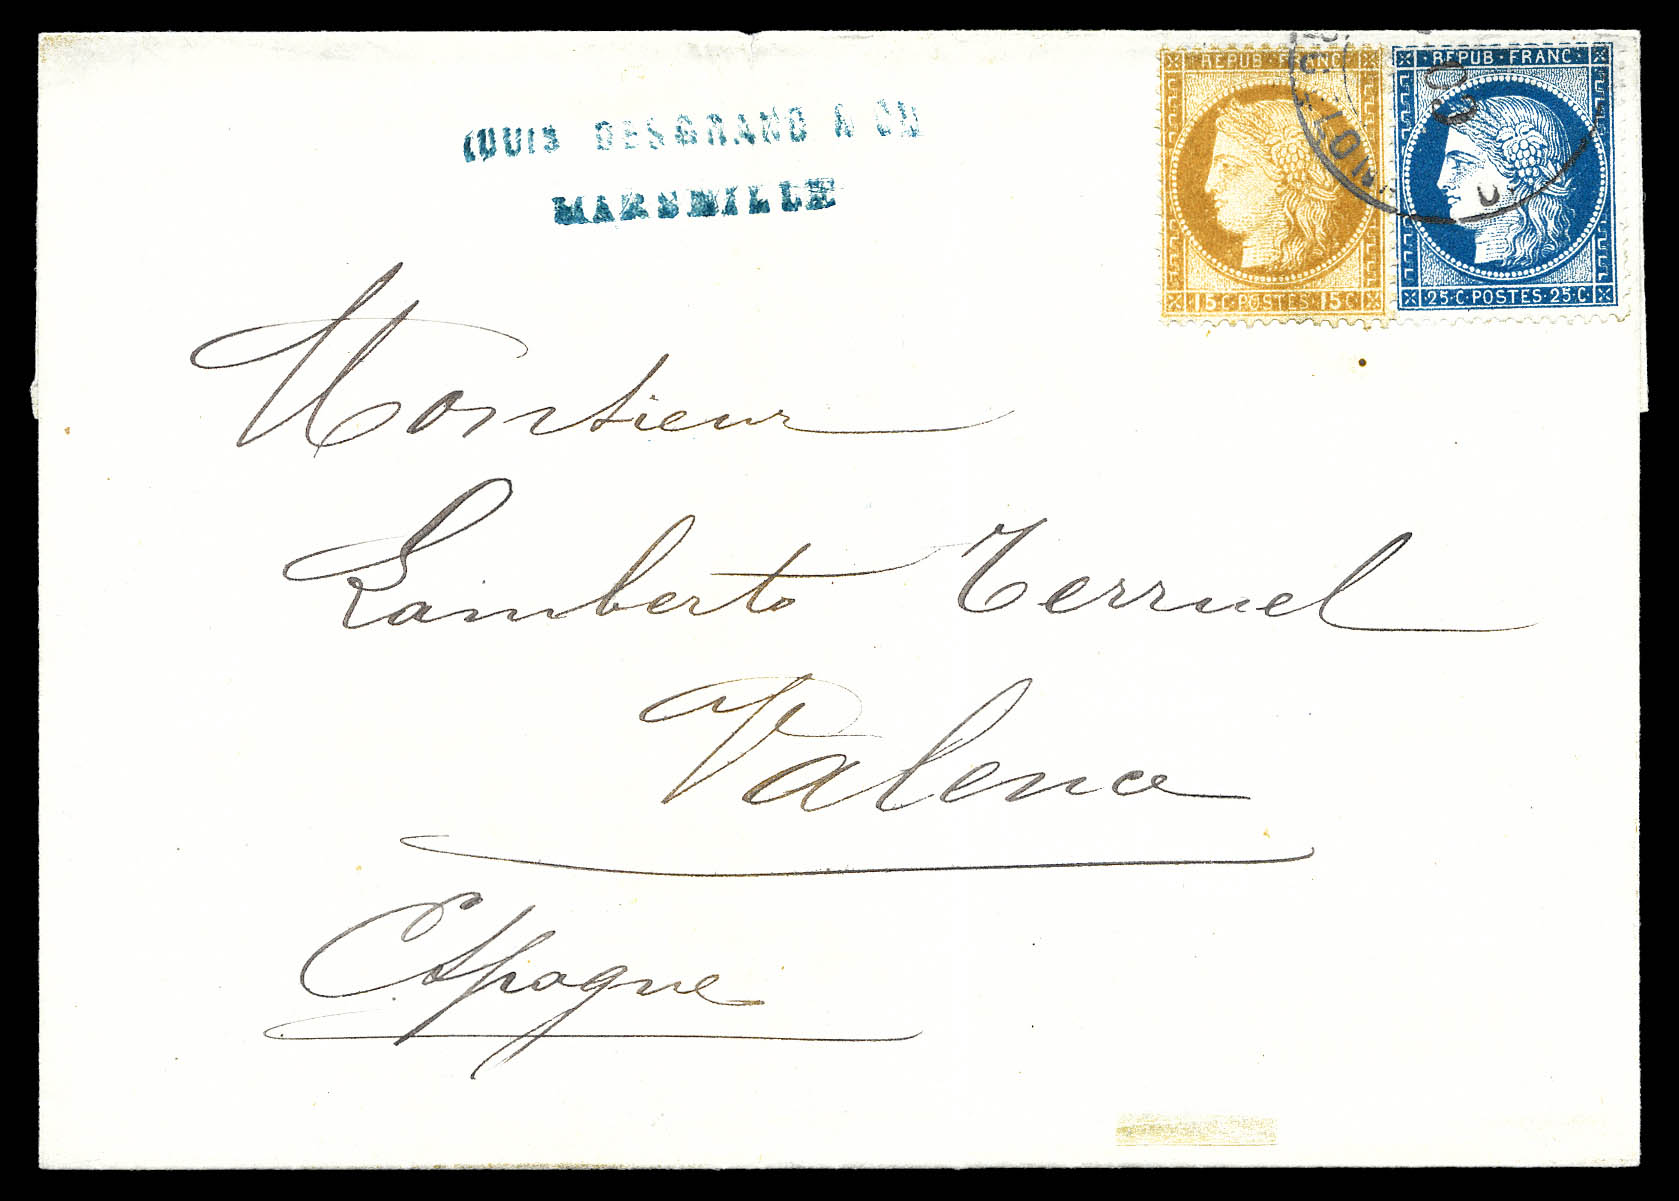 LOUIS DESGRAND & CIE
MARSEILLE
REPUB · FRANC ·
15 · C · POSTES · 15 · C
REPUB · FRANC ·
25 · C · POSTES · 25 · C
Monsieur
Lamberto Terruel
Valence
Espagne